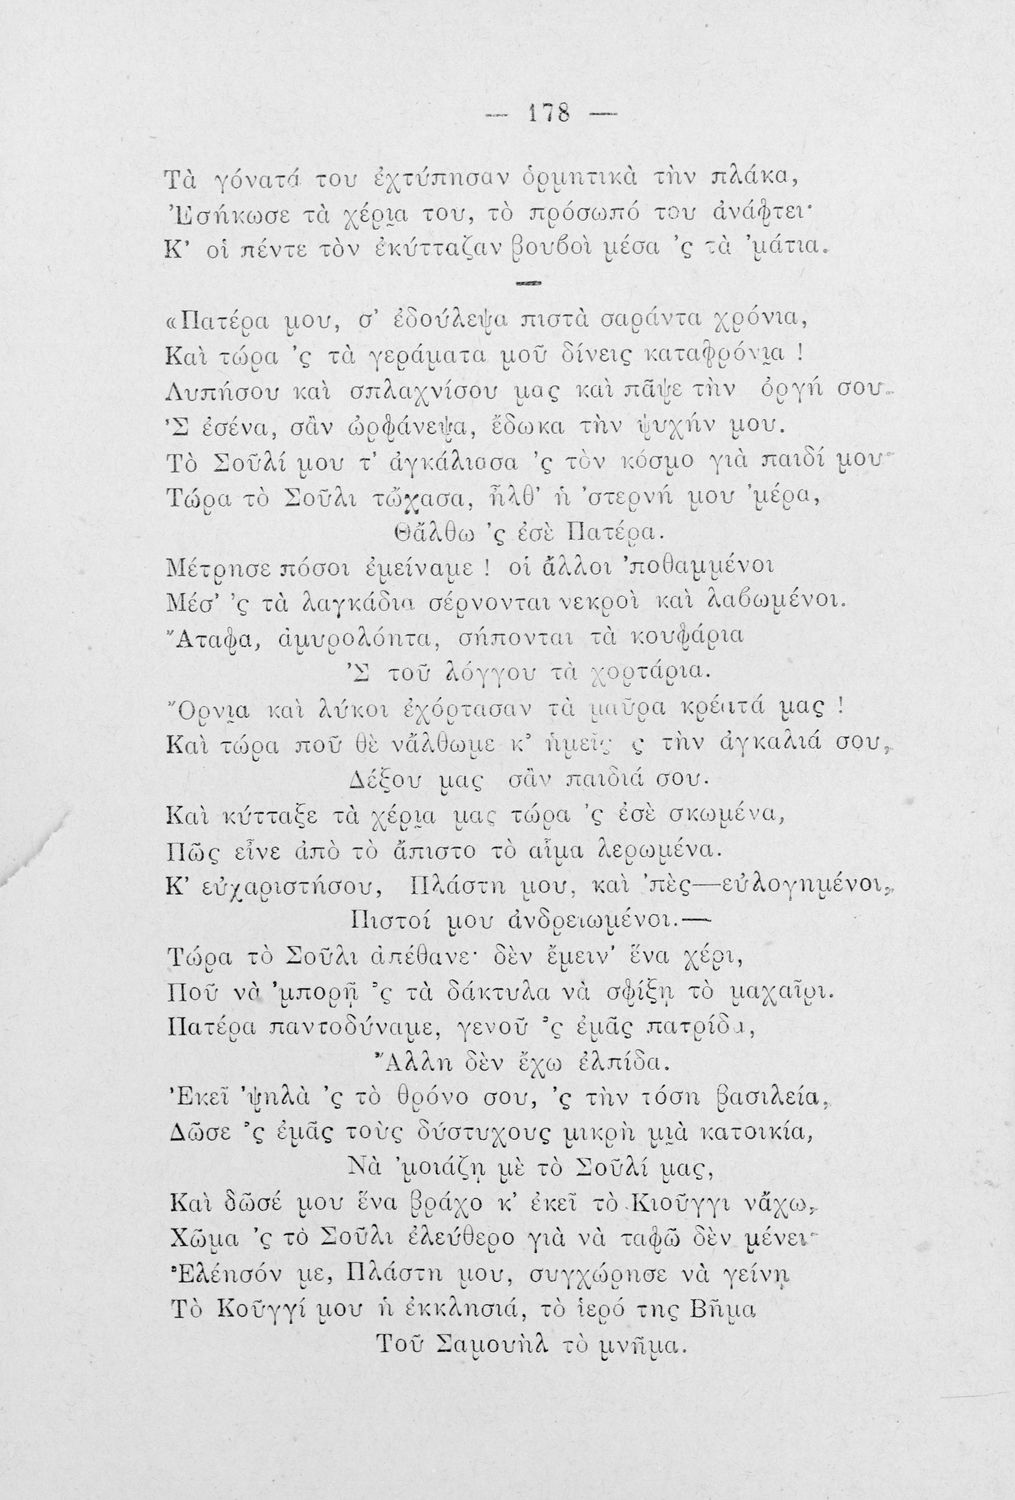 — 178 —
Τὰ γόνατά του ἐχτύπησαν ὁρμητικὰ τὴν πλάκα,
Ἐσήκωσε τὰ χέρι̯α του, τὸ πρόσωπό του ἀνάφτει·
Κ’ οἱ πέντε τὸν ἐκύτταζαν βουβοὶ μέσα ’ς τὰ ’μάτια.
«Πατέρα μου, σ’ ἐδούλεψα πιστὰ σαράντα χρόνια,
Καὶ τώρα ’ς τὰ γεράματα μοῦ δίνεις καταφρόνι̯α !
Λυπήσου καὶ σπλαχνίσου μας καὶ πᾶψε τὴν ὀργή σου.
’Σ ἐσένα, σἂν ὠρφάνεψα, ἔδωκα τὴν ψυχήν μου.
Τὸ Σοῦλί μου τ’ ἀγκάλιασα ’ς τὸν κόσμο γιὰ παιδί μου·
Τώρα τὸ Σοῦλι τὤχασα, ἦλθ’ ἡ ’στερνή μου ’μέρα,
Θἄλθω ’ς ἐσὲ Πατέρα.
Μέτρησε πόσοι ἐμείναμε ! οἱ ἄλλοι ’ποθαμμένοι
Μέσ’ ’ς τὰ λαγκάδια σέρνονται νεκροὶ καὶ λαβωμένοι.
Ἄταφα, ἀμυρολόητα, σήπονται τὰ κουφάρια
’Σ τοῦ λόγγου τὰ χορτάρια.
Ὄρνι̯α καὶ λύκοι ἐχόρτασαν τὰ μαῦρα κρέατά μας !
Καὶ τώρα ποῦ θὲ νἄλθωμε κ’ ἡμεῖς ς τὴν ἀγκαλιά σου,
Δέξου μας σἂν παιδιά σου.
Καὶ κύτταξε τὰ χέρι̯α μας τώρα ’ς ἐσὲ σκωμένα,
Πῶς εἶνε ἀπὸ τὸ ἄπιστο τὸ αἷμα λερωμένα.
Κ’ εὐχαριστήσου, Πλάστη μου, καὶ ’πὲς—εὐλογημένοι,
Πιστοί μου ἀνδρειωμένοι.—
Τώρα τὸ Σοῦλι ἀπέθανε· δὲν ἔμειν’ ἕνα χέρι,
Ποῦ νὰ ’μπορῇ ’ς τὰ δάκτυλα νὰ σφίξῃ τὸ μαχαῖρι.
Πατέρα παντοδύναμε, γενοῦ ’ς ἐμᾶς πατρίδα,
Ἄλλη δὲν ἔχω ἐλπίδα.
Ἐκεῖ ’ψηλὰ ’ς τὸ θρόνο σου, ’ς τὴν τόση βασιλεία,
Δῶσε ’ς ἐμᾶς τοὺς δύστυχους μικρὴ μι̯ὰ κατοικία,
Νὰ ’μοιάζῃ μὲ τὸ Σοῦλί μας,
Καὶ δῶσέ μου ἕνα βράχο κ’ ἐκεῖ τὸ Κιοῦγγι νἄχω,
Χῶμα ’ς τὸ Σοῦλι ἐλεύθερο γιὰ νὰ ταφῶ δὲν μένει·
Ἐλέησόν με, Πλάστη μου, συγχώρησε νὰ γείνῃ
Τὸ Κοῦγγί μου ἡ ἐκκλησιά, τὸ ἱερό της Βῆμα
Τοῦ Σαμουὴλ τὸ μνῆμα.